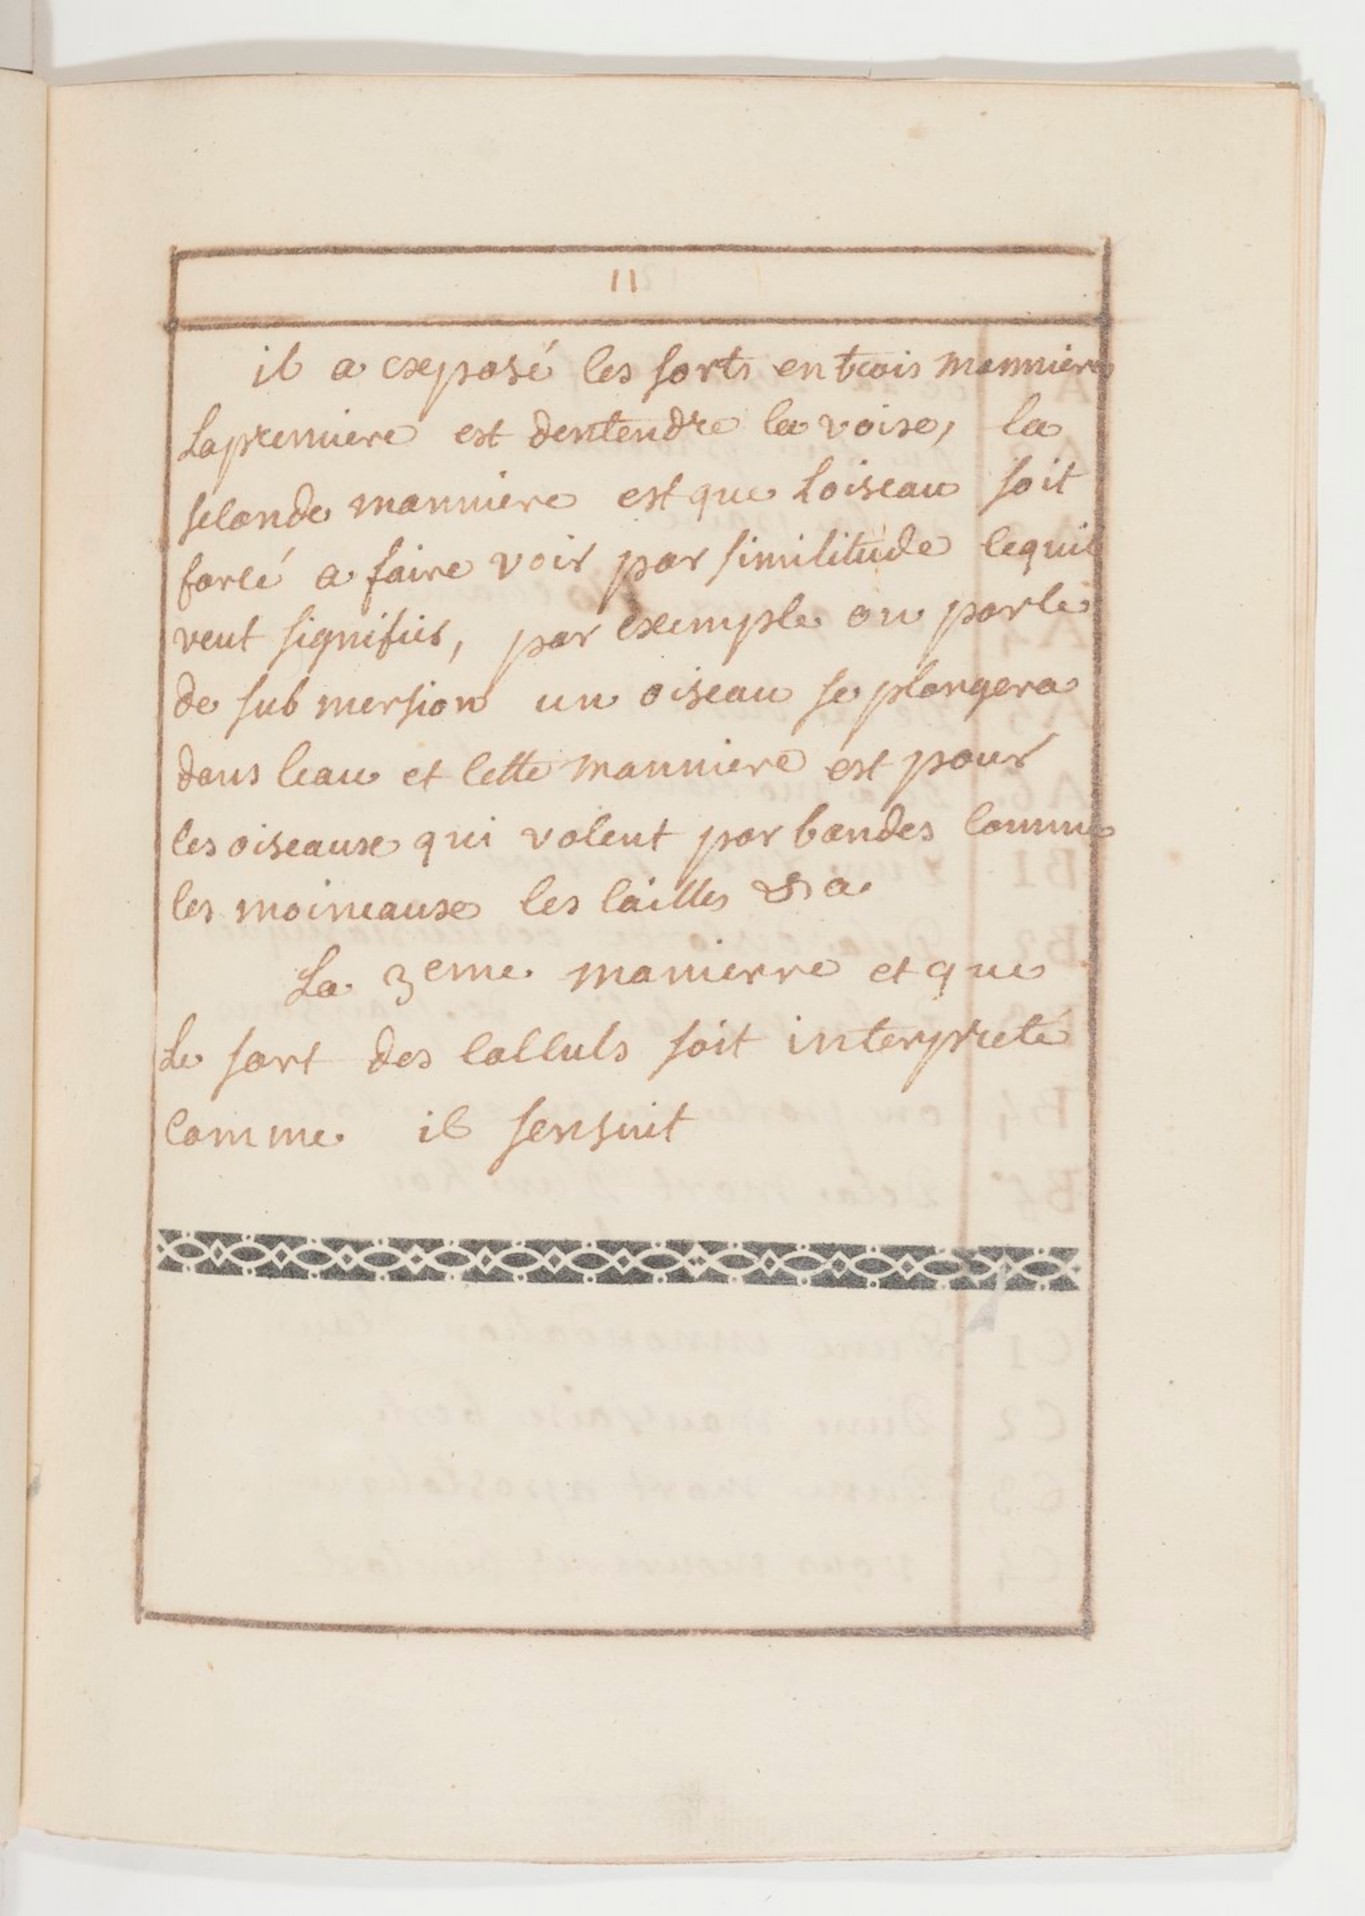 11
il a exposé les sorts en trois mannieres
La premiere est dentendre la voix, la
seconde manniere est que Loiseau soit
forcé a faire voir par similitude ce quil
veut signifier, par exemple on parle
de submersion un oiseau se plongera
dans leau et cette manniere est pour
les oiseaux qui volent par bandes comme
les moineaux les cailles &a
La 3eme manierre et que
Le sort des calculs soit interpreté
Comme il sensuit